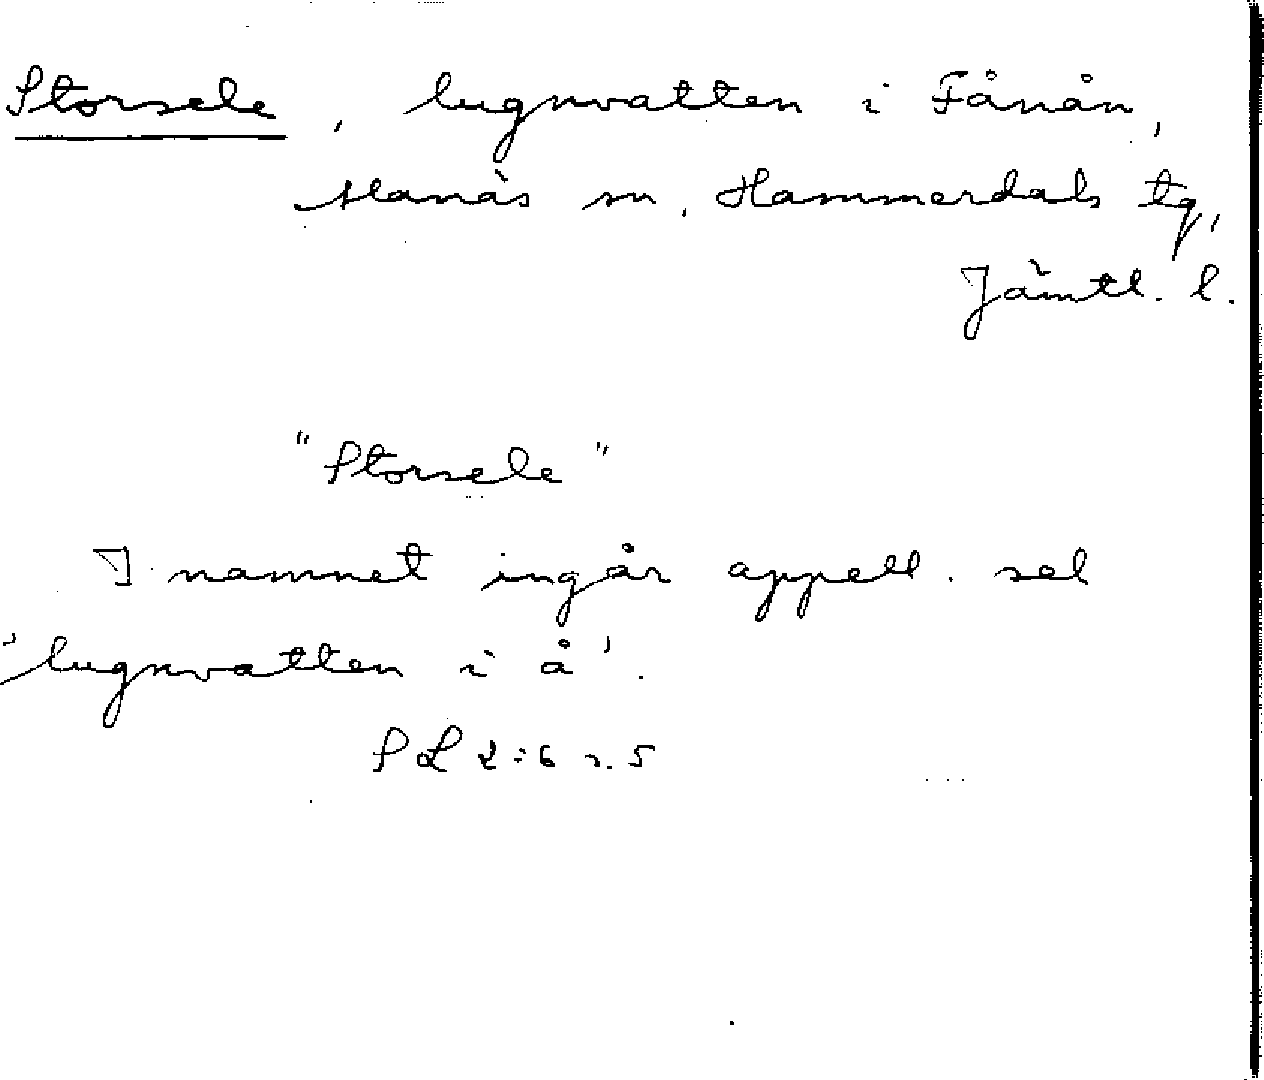 Storsele, lugnvatten i Fånån,
Alanäs sn, Hammerdals tg,
Jämtl. l.
"Storsele"
I namnet ingår appell. sel
'lugnvatten i å'.
SL 2:6 s. 5